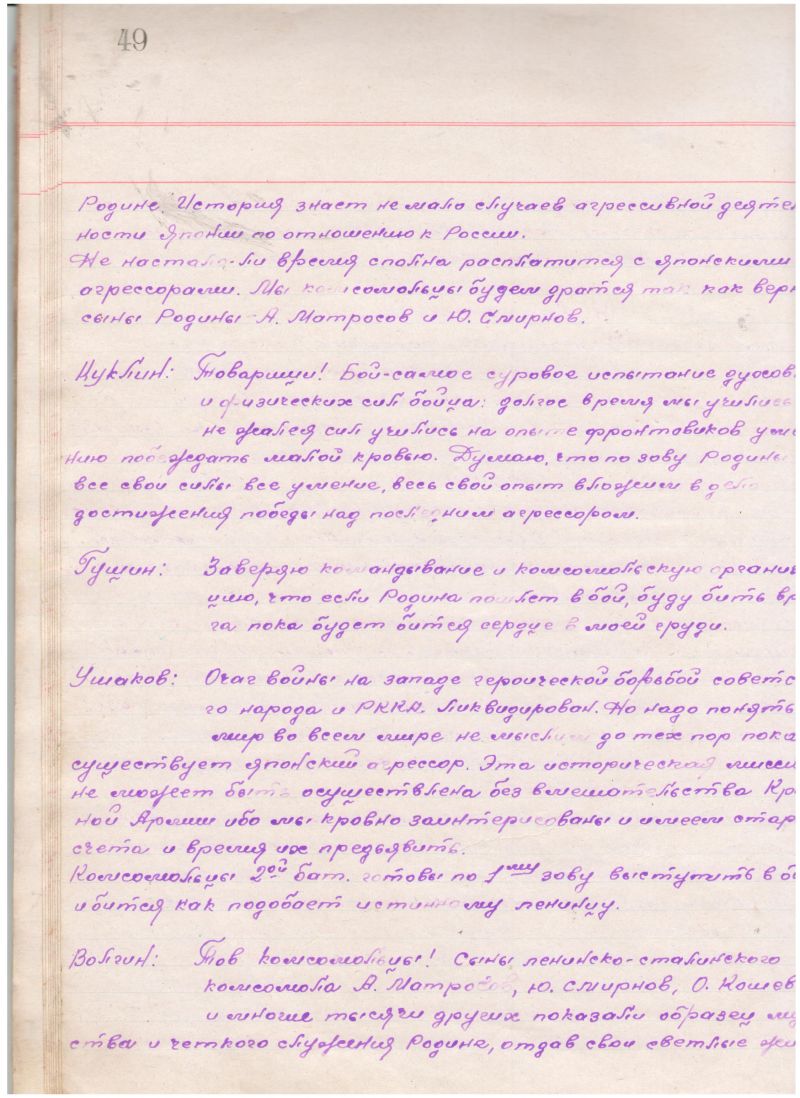 49
Родине История знает не мало случаев агрессивной деятель
ности Японии по отношению к России.
Не настало-ли время сполна расплатится с японскими
агрессорами. Мы комсомольцы будем дратся так как верн
сыны Родины А. Матросов и Ю. Смирнов.
Цуклин: Товарищи! Бой-самое суровое испытание духов
и физических сил бойца: долгое время мы учились
не жалея сил учились на опыте фронтовиков уме
нию побеждать малой кровью. Думаю, что по зову Родины
все свои силы все умение, весь свой опыт вложим в дело
достижения победы над последним агрессором.
Гущин: Заверяю командывание и комсомольскую органи
цию, что если Родина пошлет в бой, буду бить вр
га пока будет бится сердце в моей груди.
Ушаков: Очаг войны на западе героической борьбой советс
го народа и РККА. ликвидирован. Но надо понять
мир во всем мире не мыслим до тех пор пока
существует японский агрессор. Эта историческая мисси
не может быть осуществлена без вмешательства Кра
ной Армии ибо мы кровно заинтерисованы и имеем стар
счета и время их предъявить.
Комсомольцы 2ой бат. готовы по 1му зову выступить в бо
и бится как подобает истинному ленинцу.
Волгин: Тов комсомольцы! Сыны ленинско-сталинского
комсомола А. Матросов, Ю. Смирнов, О. Кошев
и многие тысячи других показали образец му
ства и четкого служения Родине, отдав свои светлые жи